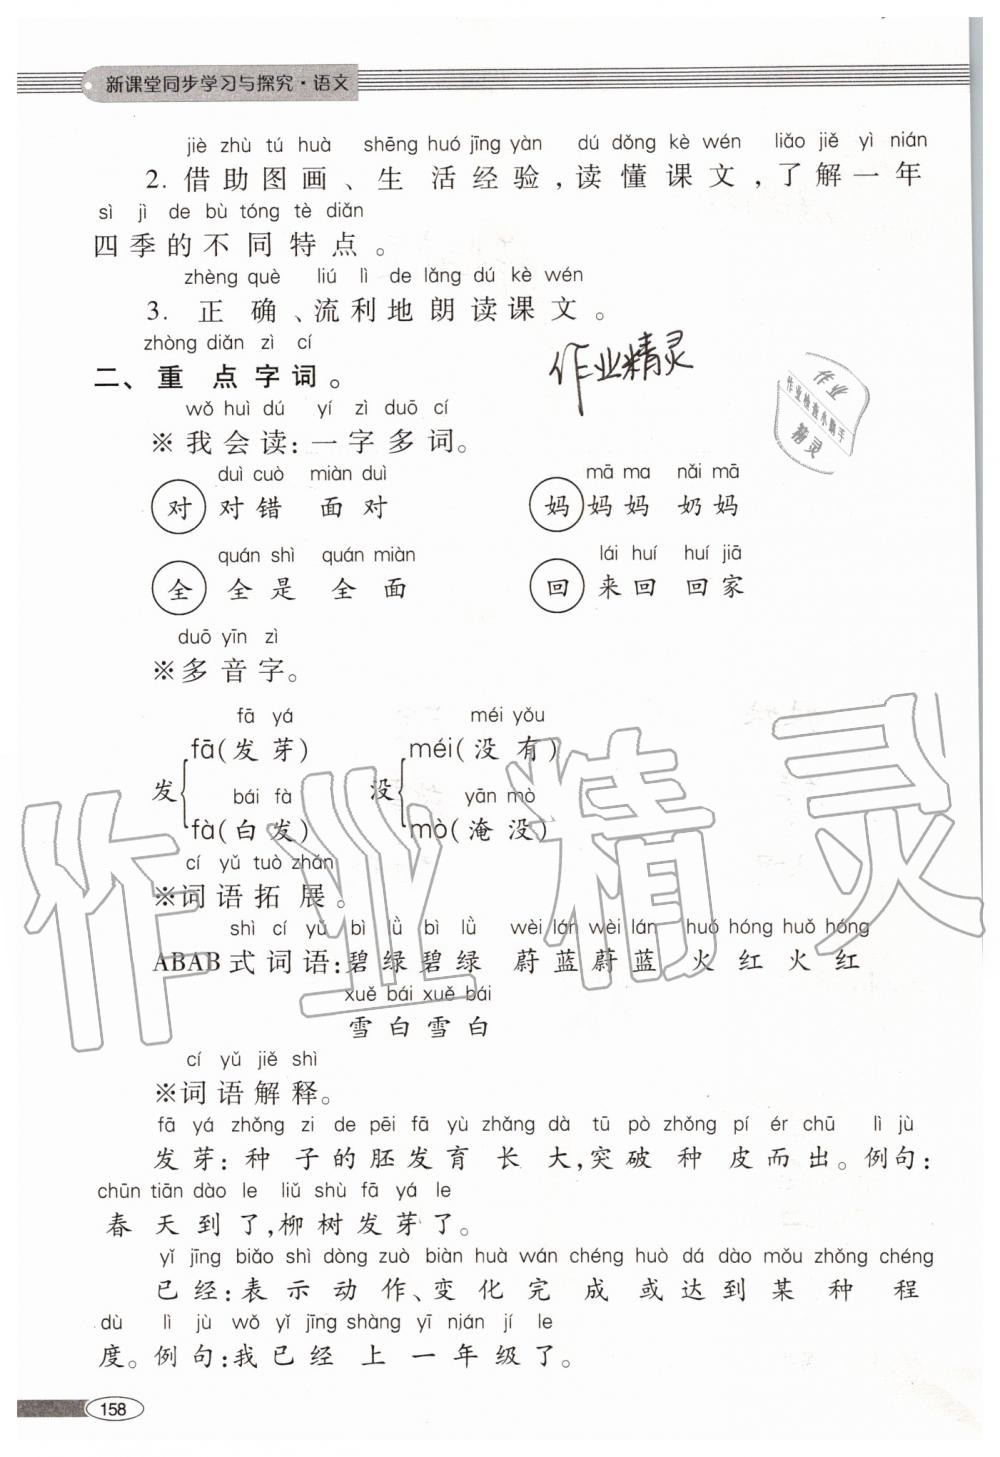 新课堂同步学习与探究·语文
jiè zhù tú huà shēng huó jīng yàn dú dǒng kè wén liǎo jiě yì nián
2. 借助图画、生活经验,读懂课文,了解一年
sì jì de bù tóng tè diǎn
四季的不同特点。
zhèng què liú lì de lǎng dú kè wén
3. 正确、流利地朗读课文。
zhòng diǎn zì cí
二、重点字词。
作业精灵
作业
作业检查小助手
精灵
wǒ huì dú yí zì duō cí
※我会读:一字多词。
duì cuò miàn duì mā ma nǎi mā
对 对错 面对 妈 妈妈 奶妈
quán shì quán miàn lái huí huí jiā
全 全是 全面 回 来回 回家
duō yīn zì
※多音字。
fā yá méi yǒu
fā(发芽) méi(没有)
发 没
bái fà yān mò
fà(白发) mò(淹没)
cí yǔ tuò zhǎn
※词语拓展。
shì cí yǔ bì lǜ bì lǜ wèi lán wèi lán huǒ hóng huǒ hóng
ABAB式词语:碧绿碧绿 蔚蓝蔚蓝 火红火红
xuě bái xuě bái
雪白雪白
cí yǔ jiě shì
※词语解释。
fā yá zhǒng zi de pēi fā yù zhǎng dà tū pò zhǒng pí ér chū lì jù
发芽:种子的胚发育长大,突破种皮而出。例句:
chūn tiān dào le liǔ shù fā yá le
春天到了,柳树发芽了。
yǐ jīng biǎo shì dòng zuò biàn huà wán chéng huò dá dào mǒu zhǒng chéng
已经:表示动作、变化完成或达到某种程
dù lì jù wǒ yǐ jīng shàng yī nián jí le
度。例句:我已经上一年级了。
158
作业精灵